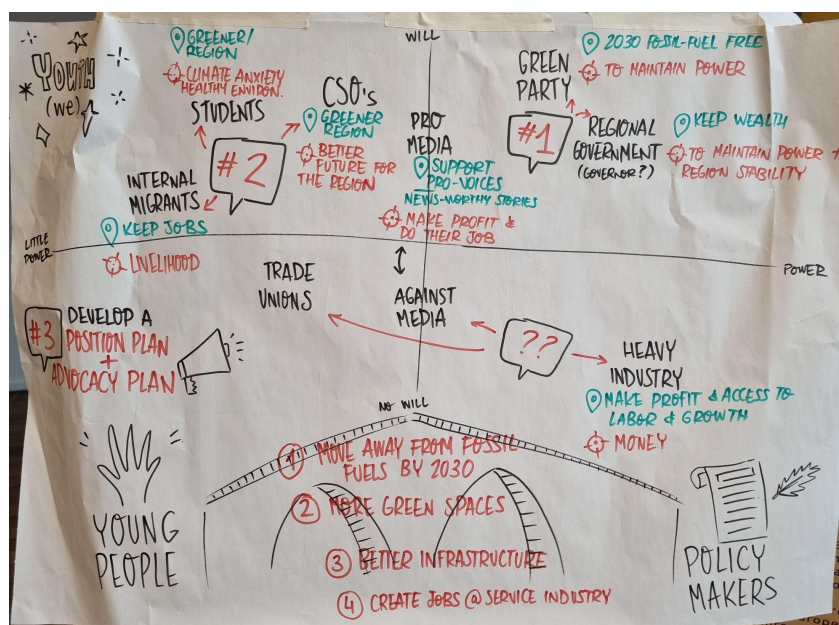 Youth
(we)
GREENER/
REGION
CLIMATE ANXIETY
HEALTHY ENVIRON.
STUDENTS
CSO's
GREENER
REGION
BETTER
FUTURE FOR
THE REGION
#2
INTERNAL
MIGRANTS
KEEP JOBS
LIVELIHOOD
WILL
PRO
MEDIA
SUPPORT
PRO-VOICES
NEWS-WORTHY STORIES
MAKE PROFIT &
DO THEIR JOB
GREEN
PARTY
2030 FOSSIL-FUEL FREE
TO MAINTAIN POWER
#1
REGIONAL
GOVERNMENT
(GOVERNOR?)
KEEP WEALTH
TO MAINTAIN POWER +
REGION STABILITY
LITTLE
POWER
POWER
TRADE
UNIONS
AGAINST
MEDIA
??
HEAVY
INDUSTRY
MAKE PROFIT & ACCESS TO
LABOR & GROWTH
MONEY
NO WILL
#3
DEVELOP A
POSITION PLAN
+
ADVOCACY PLAN
YOUNG
PEOPLE
1 MOVE AWAY FROM FOSSIL
FUELS BY 2030
2 MORE GREEN SPACES
3 BETTER INFRASTRUCTURE
4 CREATE JOBS @ SERVICE INDUSTRY
POLICY
MAKERS